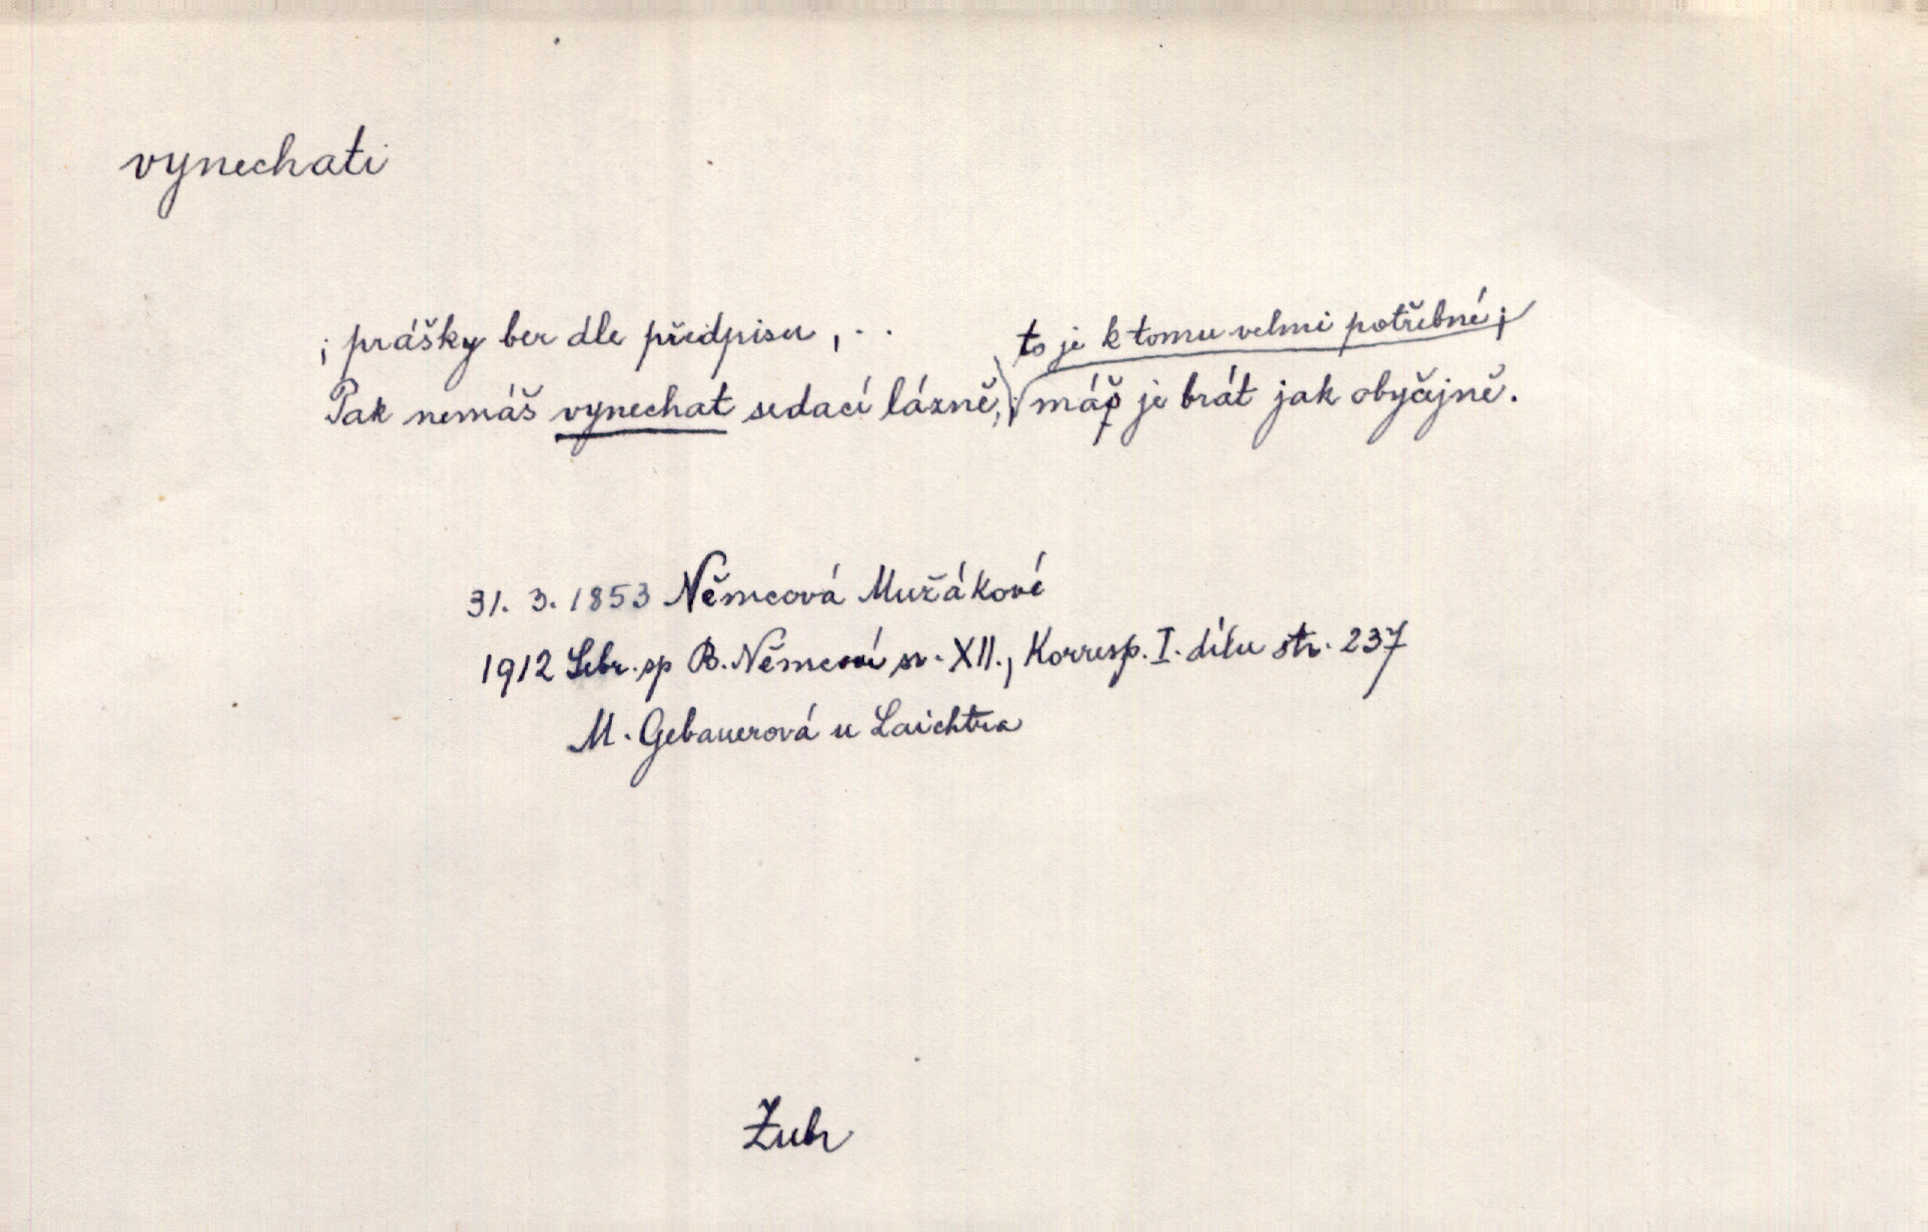 vynechati
; prášky ber dle předpisu, ..
to je k tomu velmi potřebné;
Pak nemáš vynechat sedací lázně, máš je brát jak obyčejně.
31. 3. 1853 Němcová Mužákové
1912 Sebr. sp B. Němcové sv. XII., Korresp. I. dílu str. 237
M. Gebauerová u Laichtra
Zubr